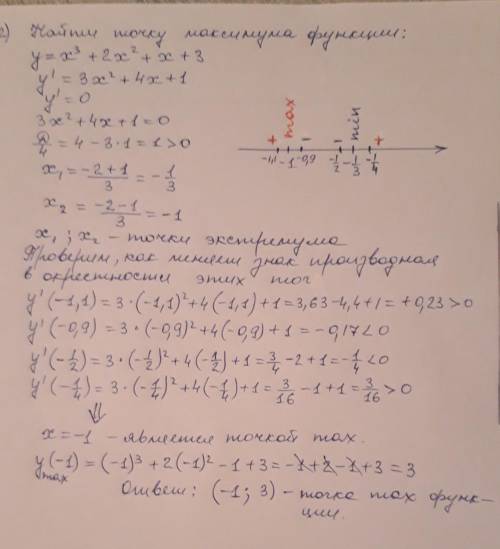 2) Найти точку максимума функции:
y = x³ + 2x² + x + 3
y' = 3x² + 4x + 1
y' = 0
3x² + 4x + 1 = 0
D/4 = 4 - 3·1 = 1 > 0
x₁ = (-2+1)/3 = -1/3
x₂ = (-2-1)/3 = -1
+ max - - min +
-1,1 -1 -0,9 -1/2 -1/3 -1/4
x₁ ; x₂ - точки экстремума
Проверим, как меняет знак производная
в окрестности этих точ
y'(-1,1) = 3·(-1,1)² + 4(-1,1) + 1 = 3,63 - 4,4 + 1 = +0,23 > 0
y'(-0,9) = 3·(-0,9)² + 4(-0,9) + 1 = -0,17 < 0
y'(-1/2) = 3·(-1/2)² + 4(-1/2) + 1 = 3/4 - 2 + 1 = -1/4 < 0
y'(-1/4) = 3·(-1/4)² + 4(-1/4) + 1 = 3/16 - 1 + 1 = 3/16 > 0
⇓
x = -1 - является точкой max.
y max (-1) = (-1)³ + 2(-1)² - 1 + 3 = -1 + 2 - 1 + 3 = 3
Ответ: (-1; 3) - точка max функ-
ции.